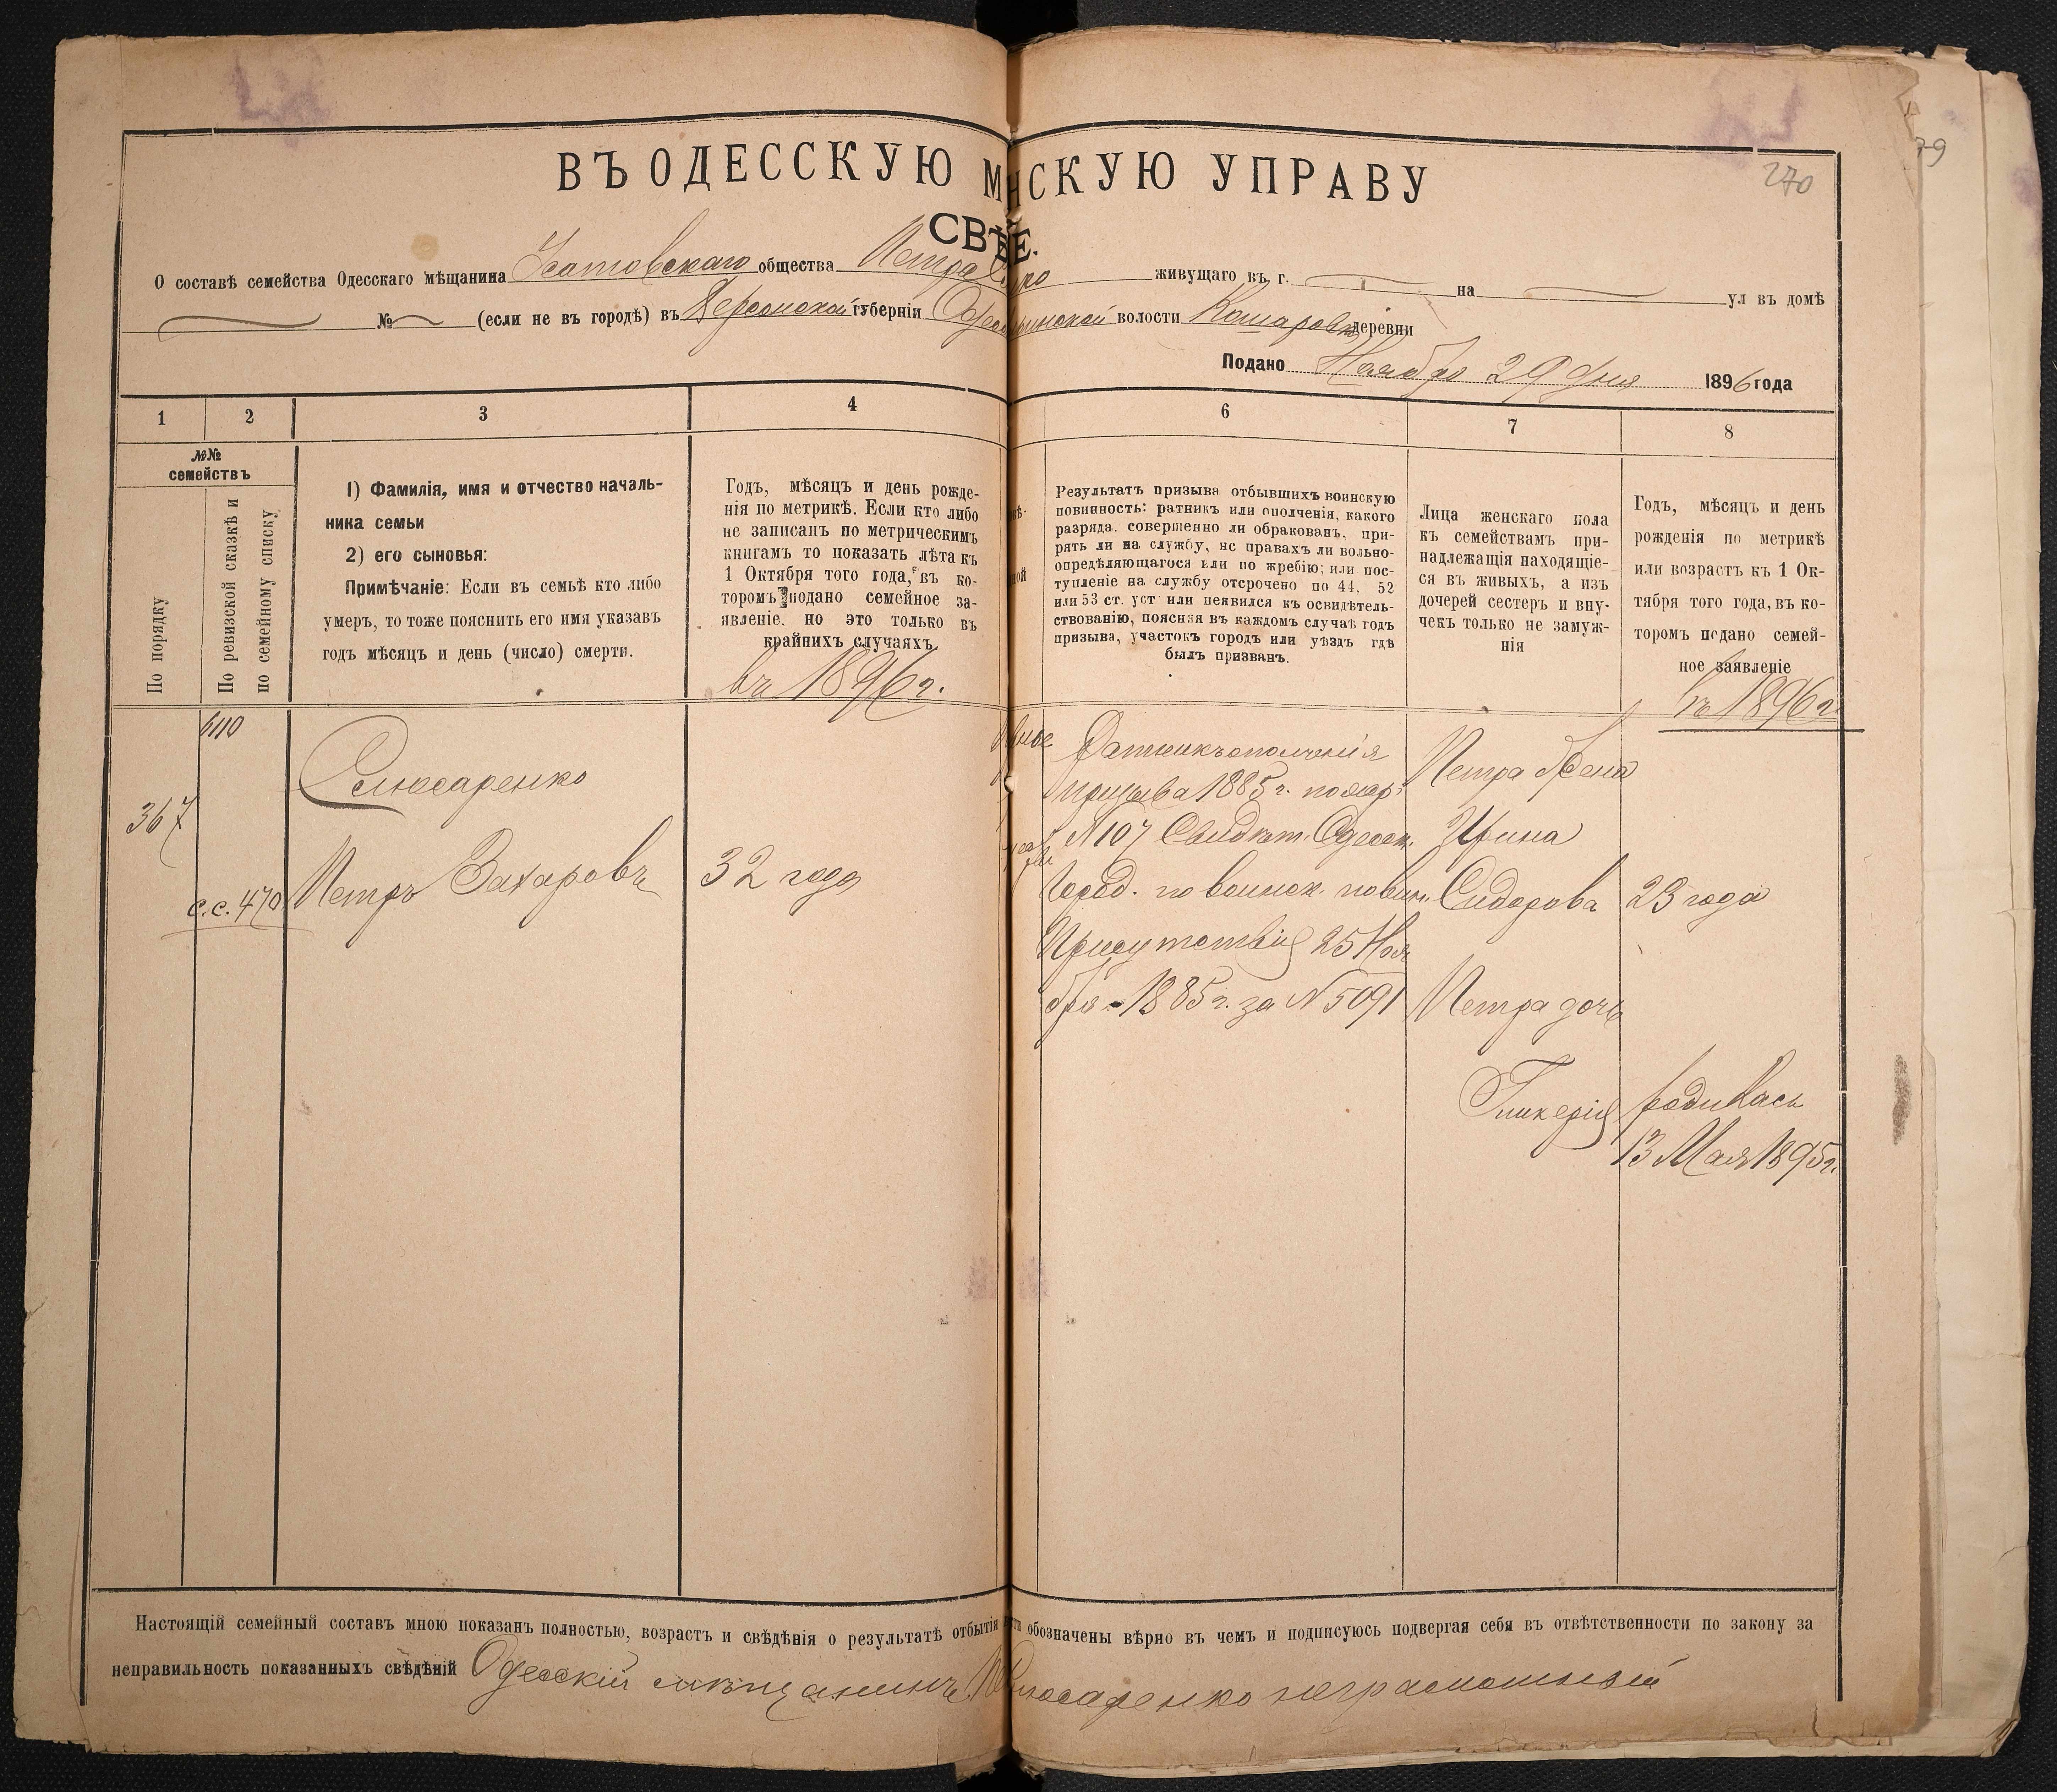 270
79
ВЪ ОДЕССКУЮ М НСКУЮ УПРАВУ
СВѢ Е.
О составѣ семейства Одесскаго мѣщанина Усатовскаго общества Петра живущаго въ г. на ул въ домѣ
№ (если не въ городѣ) въ Херсонской губерніи волости деревни
Подано Ноября 29 дня 1896 года
1 2 3 4 6 7 8
№№ семействъ
По порядку
По ревизской сказкѣ и
по семейному списку
1) Фамилія, имя и отчество началь-
ника семьи
2) его сыновья:
Примѣчаніе: Если въ семьѣ кто либо
умеръ, то тоже пояснить его имя указавъ
годъ мѣсяцъ и день (число) смерти.
Годъ, мѣсяцъ и день рожде-
нія по метрикѣ. Если кто либо
не записанъ по метрическимъ
книгамъ то показать лѣта къ
1 Октября того года, въ ко-
торомъ подано семейное за-
явленіе, но это только въ
крайнихъ случаяхъ
въ 1896 г.
Результатъ призыва отбывшихъ воинскую
повинность: ратникъ или ополченія, какого
разряда, совершенно ли обракованъ, при-
рять ли на службу, не правахъ ли вольно-
опредѣляющагося или по жребію; или пос-
тупленіе на службу отсрочено по 44, 52
или 53 ст. уст или неявился къ освидѣтель-
ствованію, поясняя въ каждомъ случаѣ годъ
призыва, участокъ городъ или уѣздъ гдѣ
былъ призванъ.
Лица женскаго пола
къ семействамъ при-
надлежащія находящіе-
ся въ живыхъ, а изъ
дочерей сестеръ и вну-
чекъ только не замуж-
нія
Годъ, мѣсяцъ и день
рожденія по метрикѣ
или возрастъ къ 1 Ок-
тября того года, въ ко-
торомъ подано семей-
ное заявленіе
въ 1896 г.
367
с.с. 470
Слюсаренко
Петръ Захаровъ
32 года
Ратникъ ополченія
призыва 1885 г. по жер:
N 107 Свидѣт. Одесск.
Город. по воинск. повин.
Присутствія 25 Ноя
бря - 1885 г. за N 5091
Петра Жена
Ирина
Сидорова 23 года
Петра дочь
Гликерія родилась
13 Мая 1895 г.
Настоящій семейный составъ мною показанъ полностью, возрастъ и свѣдѣнія о результатѣ отбытія обозначены вѣрно въ чемъ и подписуюсь подвергая себя въ отвѣтственности по закону за
неправильность показанныхъ свѣдѣній Одесскій мѣщанинъ Слюсаренко неграмотный